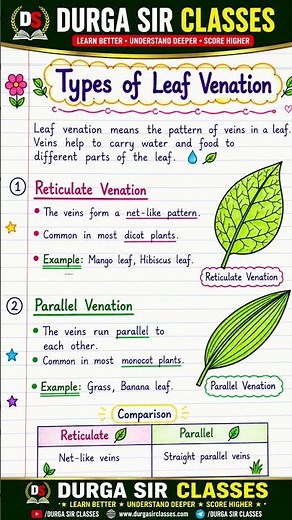 DS DURGA SIR CLASSES
LEARN BETTER • UNDERSTAND DEEPER • SCORE HIGHER
Types of Leaf Venation
Leaf venation means the pattern of veins in a leaf.
Veins help to carry water and food to
different parts of the leaf.
1 Reticulate Venation
• The veins form a net-like pattern.
• Common in most dicot plants.
• Example: Mango leaf, Hibiscus leaf.
Reticulate Venation
2 Parallel Venation
• The veins run parallel to
each other.
• Common in most monocot plants.
• Example: Grass, Banana leaf.
Parallel Venation
Comparison
Reticulate Parallel
Net-like veins Straight parallel veins
DS DURGA SIR CLASSES
★ LEARN BETTER ★ UNDERSTAND DEEPER ★ SCORE HIGHER ★
/DURGA SIR CLASSES www.durgasirclasses.com /DURGA SIR CLASSES